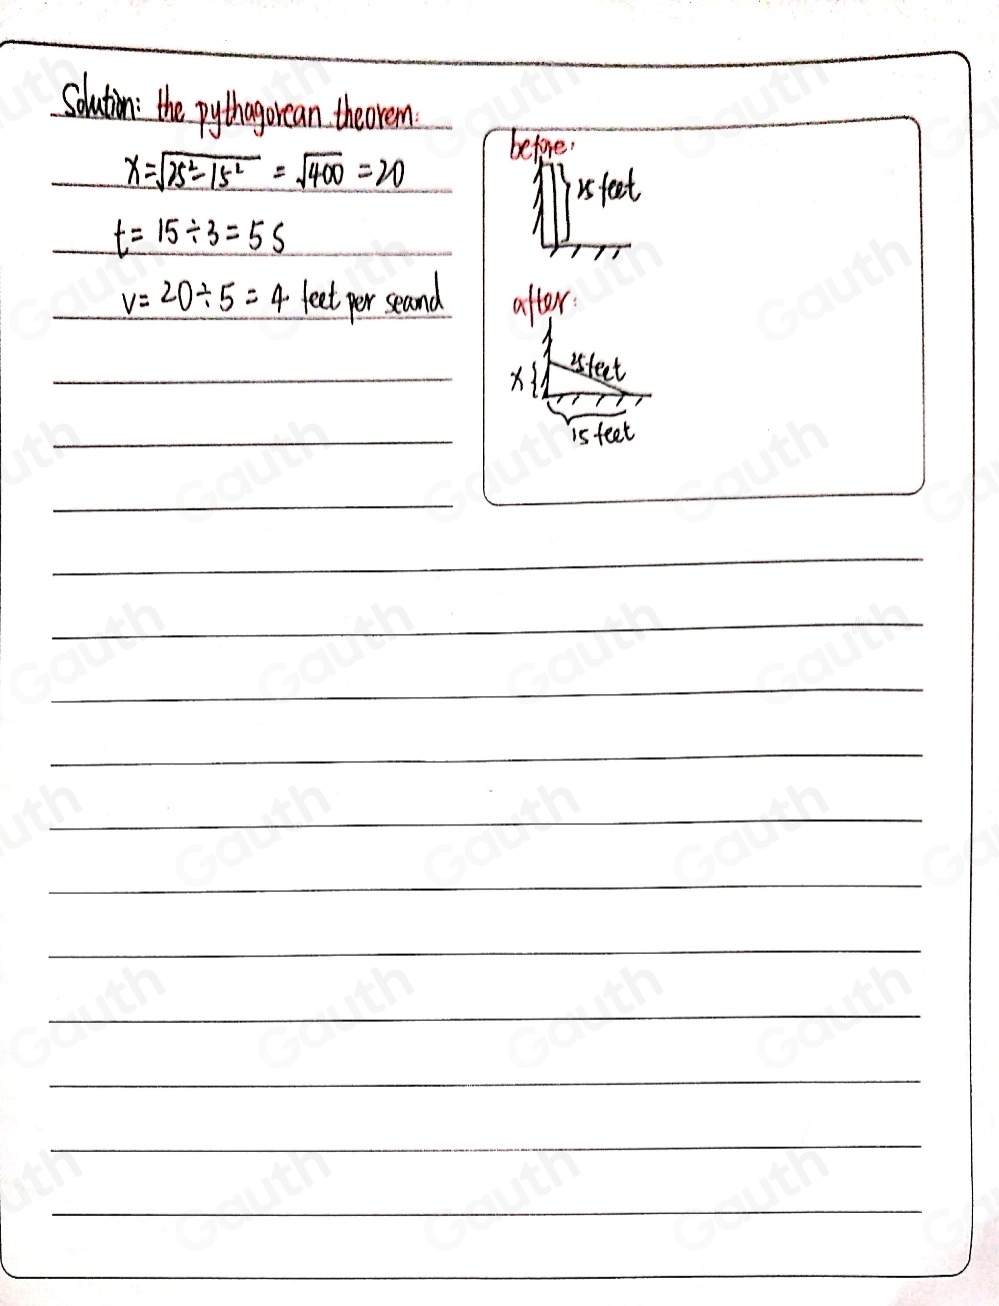 Solution: the pythagorean theorem:
x=√25²-15² = √400 = 20
t= 15÷3=5 S
v= 20÷5 = 4 feet per second
before:
25 feet
after:
25 feet
x
15 feet
Gauth